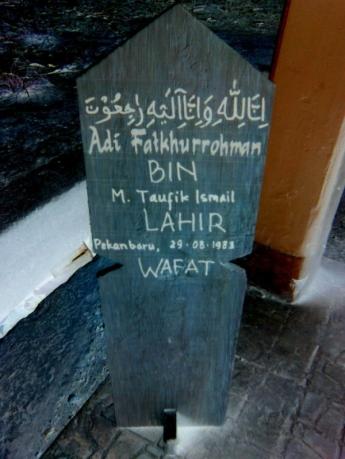 إنا لله وإنا إليه راجعون
Adi Fatkhurrohman
BIN
M. Taufik Ismail
LAHIR
Pekanbaru, 29-08-1983
WAFAT